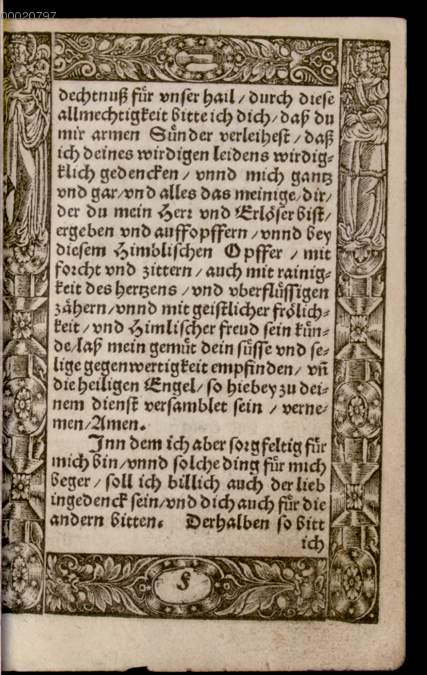 00020797
dechtnuß für vnser hail / durch diese
allmechtigkeit bitte ich dich / daß du
mir armen Sünder verleihest / daß
ich deines wirdigen leidens wirdig⸗
klich gedencken / vnnd mich gantz
vnd gar / vnd alles das meinige / dir /
der du mein Herr vnd Erlöser bist /
ergeben vnd auffopffern / vnnd bey
diesem Himblischen Opffer / mit
forcht vnd zittern / auch mit rainig⸗
keit des hertzens / vnd vberflüssigen
zähern / vnnd mit geistlicher frölich⸗
keit / vnd Himlischer freud sein kün⸗
de / laß mein gemüt dein süsse vnd se⸗
lige gegenwertigkeit empfinden / vñ
die heiligen Engel / so hiebey zu dei⸗
nem dienst versamblet sein / verne⸗
men / Amen.
Jnn dem ich aber sorgfeltig für
mich bin / vnnd solche ding für mich
beger / soll ich billich auch der lieb
ingedenck sein / vnd dich auch für die
andern bitten. Derhalben so bitt
ich